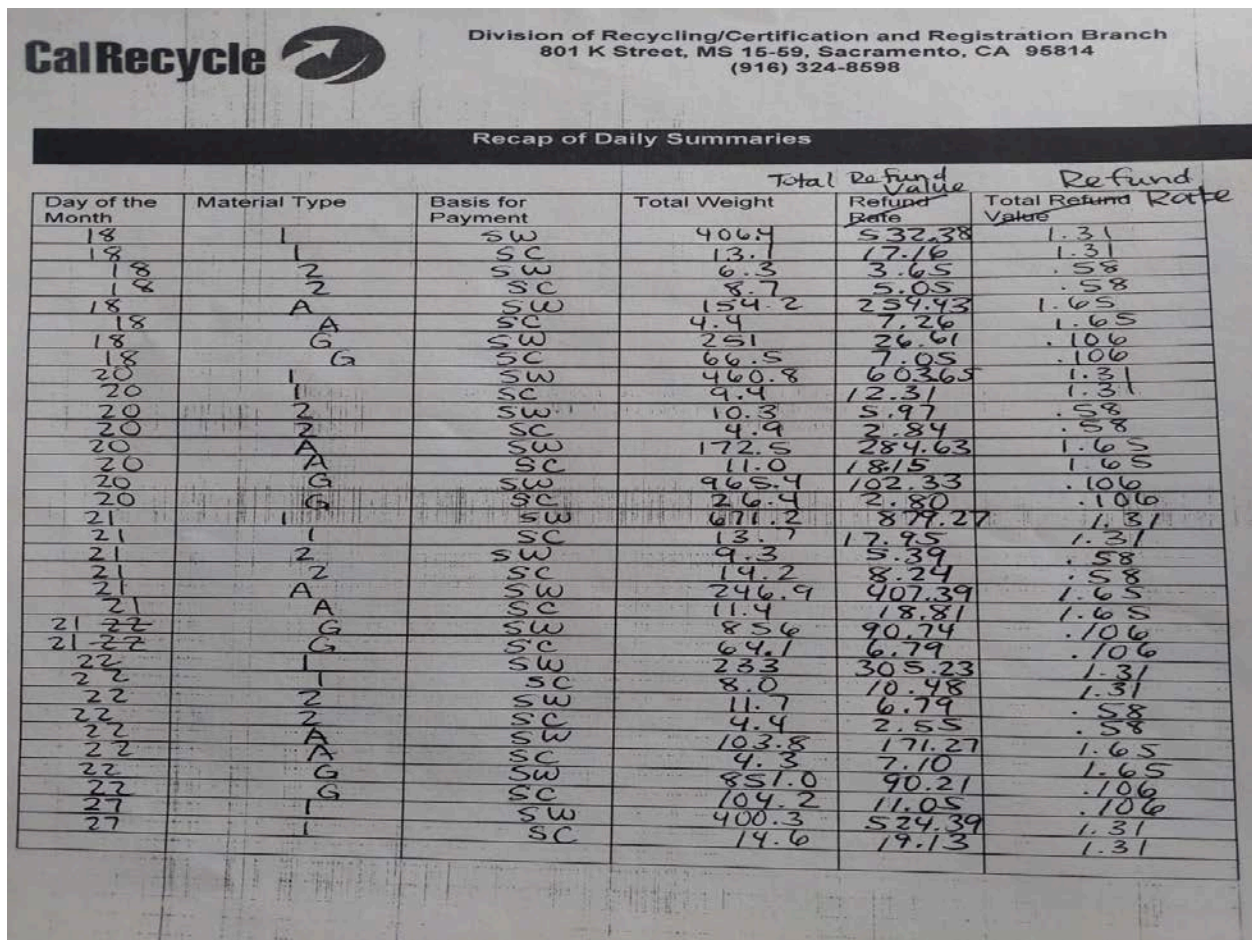 CalRecycle
Division of Recycling/Certification and Registration Branch
801 K Street, MS 15-59, Sacramento, CA 95814
(916) 324-8598
Recap of Daily Summaries
Total Refund Value Refund Rate
Day of the Month Material Type Basis for Payment Total Weight Refund Rate Total Refund Value
18 1 SW 406.4 532.38 1.31
18 1 SC 13.1 17.16 1.31
18 2 SW 6.3 3.65 .58
18 2 SC 8.7 5.05 .58
18 A SW 154.2 254.43 1.65
18 A SC 4.4 7.26 1.65
18 G SW 251 26.61 .106
18 G SC 66.5 7.05 .106
20 1 SW 460.8 603.65 1.31
20 1 SC 9.4 12.31 1.31
20 2 SW 10.3 5.97 .58
20 2 SC 4.9 2.84 .58
20 A SW 172.5 284.63 1.65
20 A SC 11.0 18.15 1.65
20 G SW 965.4 102.33 .106
20 G SC 26.4 2.80 .106
21 1 SW 671.2 879.27 1.31
21 1 SC 13.7 17.95 1.31
21 2 SW 9.3 5.39 .58
21 2 SC 14.2 8.24 .58
21 A SW 246.9 407.39 1.65
21 A SC 11.4 18.81 1.65
21 22 G SW 856 90.74 .106
21 22 G SC 64.1 6.79 .106
22 1 SW 233 305.23 1.31
22 1 SC 8.0 10.48 1.31
22 2 SW 11.7 6.79 .58
22 2 SC 4.4 2.55 .58
22 A SW 103.8 171.27 1.65
22 A SC 4.3 7.10 1.65
22 G SW 851.0 90.21 .106
22 G SC 104.2 11.05 .106
27 1 SW 400.3 524.39 1.31
27 1 SC 14.6 19.13 1.31